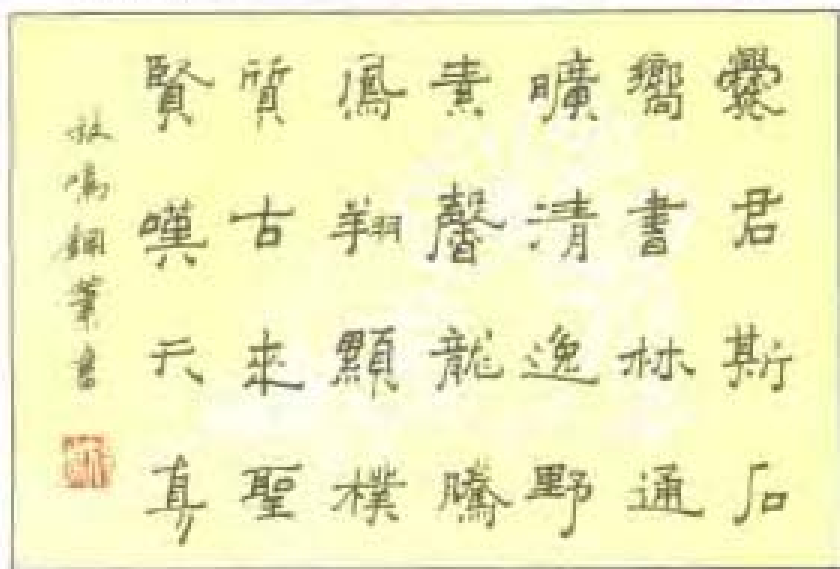 爨君斯石
嚮書林通
曠清逸野
素馨龍騰
鳳翔顯樸
質古來聖
賢嘆天真
鋼筆書